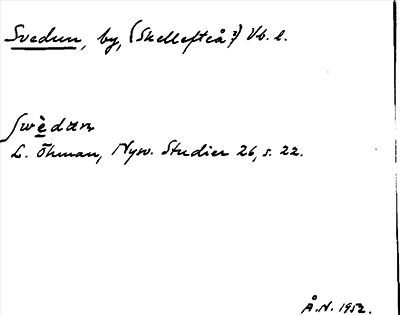 Svedun, by, (Skellefteå?) Vb. l.
L. Öhman, Nysv. Studier 26, s. 22.
Å.N. 1952.